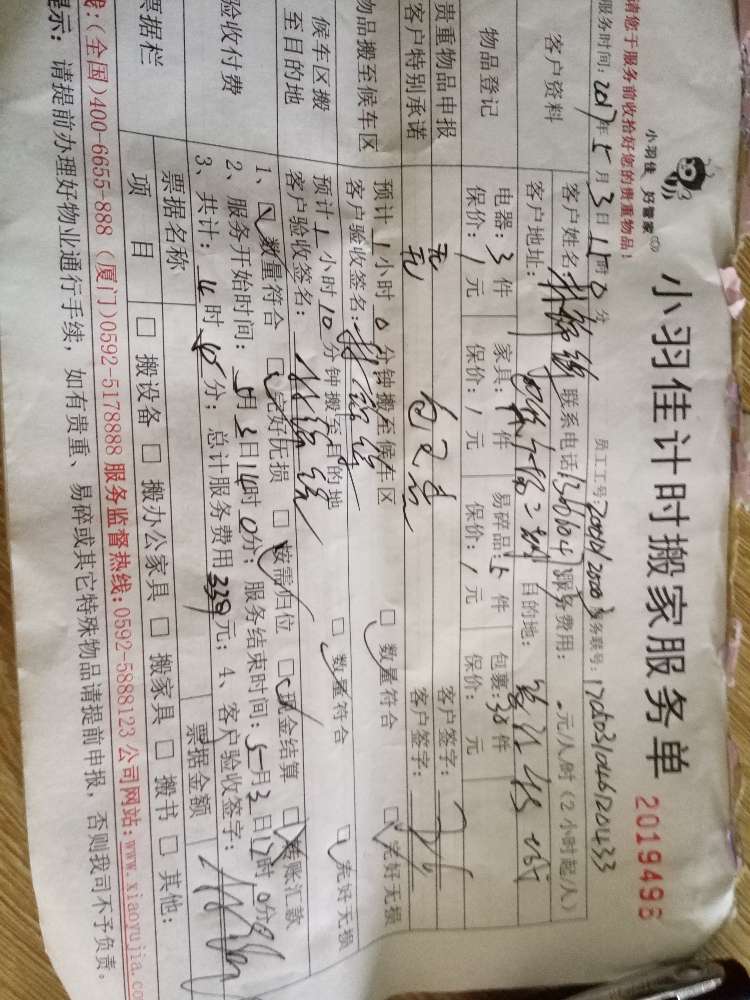 小羽佳 好管家
小羽佳计时搬家服务单
2019498
请您于服务前收拾好您的贵重物品！
服务时间：2017年5月3日 时0分 员工工号： 服务联号：
客户资料 客户姓名： 联系电话 服务费用： 元/人/时（2小时起/人）
客户地址： 目的地：
物品登记 电器：3件 家具：1件 易碎品：5件 包裹：30件
保价：/元 保价：/元 保价：/元 保价： 元
贵重物品申报 无 客户签字：
客户特别承诺 无 客户签字：
物品搬至候车区 预计1小时0分钟搬至候车区 □数量符合 □完好无损
客户验收签名：
候车区搬至目的地 预计1小时10分钟搬至目的地 □数量符合 □完好无损
客户验收签名：
验收付费 1、□数量符合 □完好无损 □按需归位 □现金结算 □转账汇款
2、服务开始时间：5月3日14时0分；服务结束时间：5月3日17时0分
3、共计： 时 分；总计服务费用 元；4、客户验收签字：
票据栏 票据名称 票据金额
项目 □搬设备 □搬办公家具 □搬家具 □搬书 □其他：
线：(全国)400-6655-888 (厦门)0592-5178888 服务监督热线：0592-5888123 公司网站：www.xiaoyujia.co
提示：请提前办理好物业通行手续，如有贵重、易碎或其它特殊物品请提前申报，否则我司不予负责。